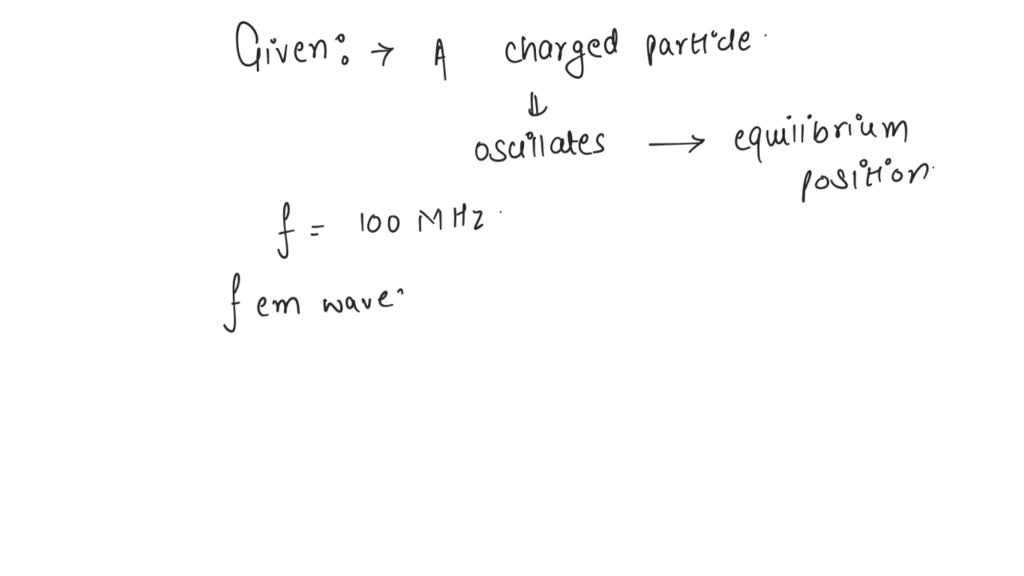 Given: → A charged particle.
↓
oscillates → equilibrium
position.
f = 100 MHz.
f em wave.